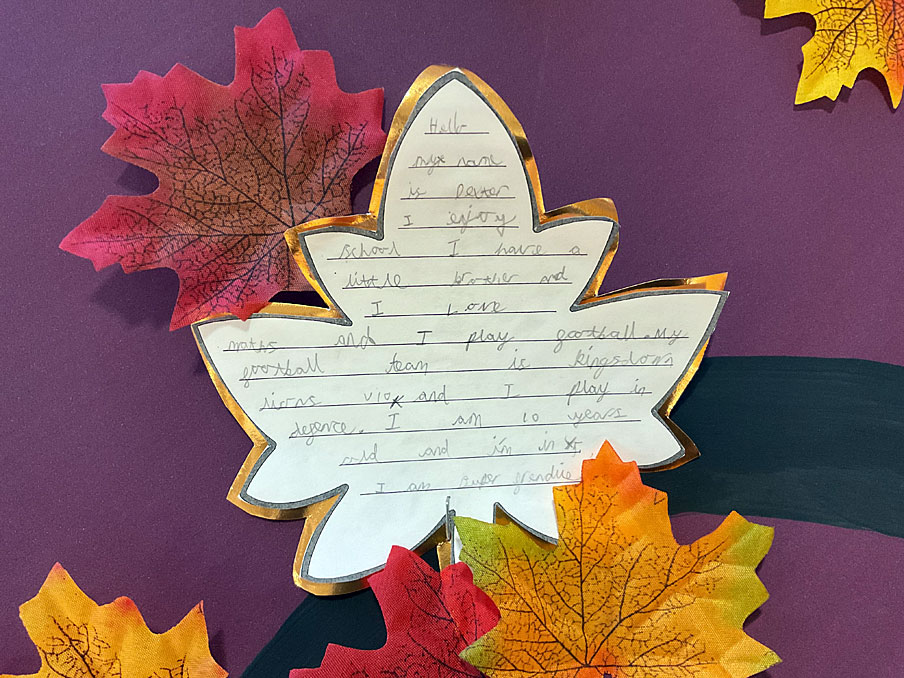 Hello
my name
is Dexter
I enjoy
school I have a
little brother and
I love
maths and I play football. My
football team is kingstown
U10 and I play in
defence. I am 10 years
old and i'm in
I am super